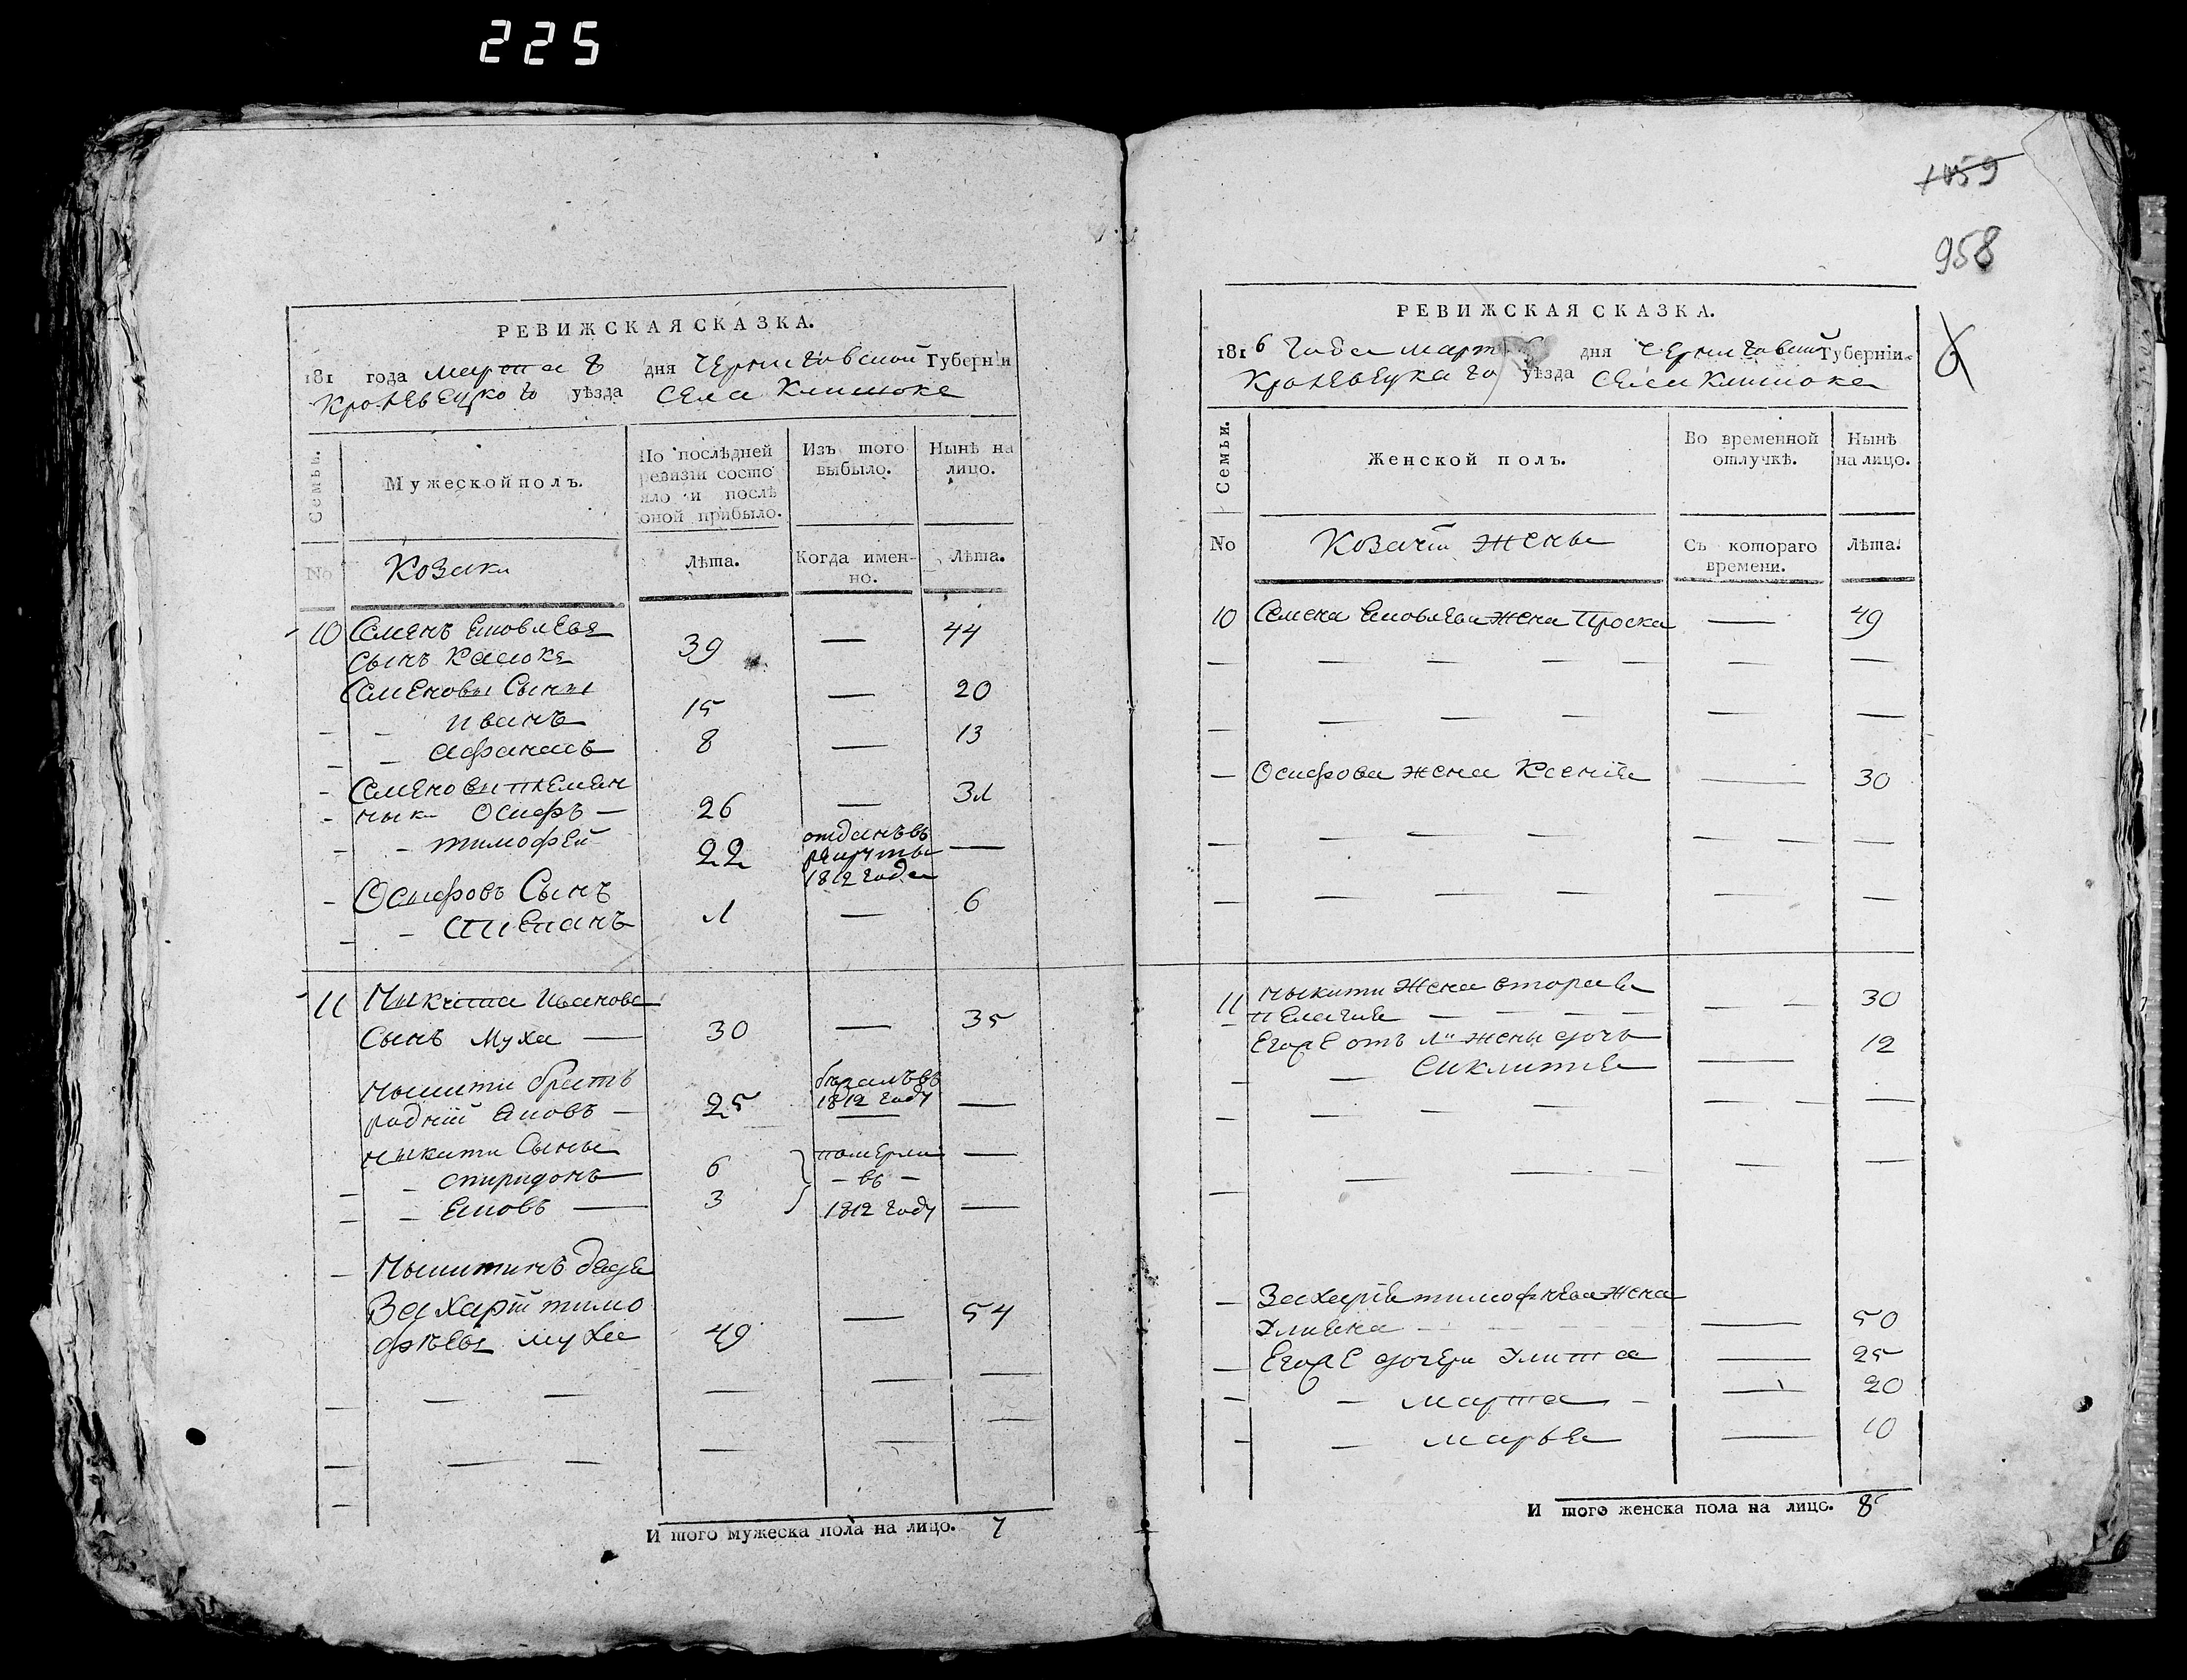 225
РЕВИЖСКАЯ СКАЗКА.
181 года марта 8 дня Черниговской Губерніи
Кролевецкого уѣзда Села Клишокъ
Семьи.
Мужеской полъ.
По послѣдней ревизіи состояло и послѣ оной прибыло.
Изъ того выбыло.
Нынѣ на лицо.
No
Козаки
Лѣта.
Когда именно.
Лѣта.
10 Семенъ
сынъ 39 — 44
Семеновы Сыны
- иванъ 15 — 20
- афанасъ 8 — 13
Семенови племян
ныки Осифъ — 26 — 31
- тимофей 22 отданъ въ рекруты 1812 года —
Осифовъ Сынъ
- Степанъ 1 — 6
11 Никита Иванова
Сынъ Муха — 30 — 35
Ныкити братъ
родній Яковъ — 25 бѣжалъ въ 1812 году —
Ныкити Сыны
- спиридонъ 6 померли —
- Яковъ — 3 - въ - 1812 году —
Ныкитинъ дядя
Захарій тимо
фѣевъ муха 49 — 54
И того мужеска пола на лицо. 7
1059
958
РЕВИЖСКАЯ СКАЗКА.
1816 года март дня Черниговской Губерніи.
Кролевецкаго уѣзда Села Клишокъ
Семьи.
Женской полъ.
Во временной отлучкѣ.
Нынѣ на лицо.
No
Козачіи жены
Съ котораго времени.
Лѣта.
10 Семена жена Проска — 49
— Осифова жена Ксенія — 30
11 Ныкити жена вторая
пелагия — 30
Егоже отъ 1й жены дочь
— Сиклитія — 12
— Захарія тимофѣева жена
Улияна — 50
— Егоже дочери Улита — 25
— марта — 20
— марья — 10
И того женска пола на лицо. 8